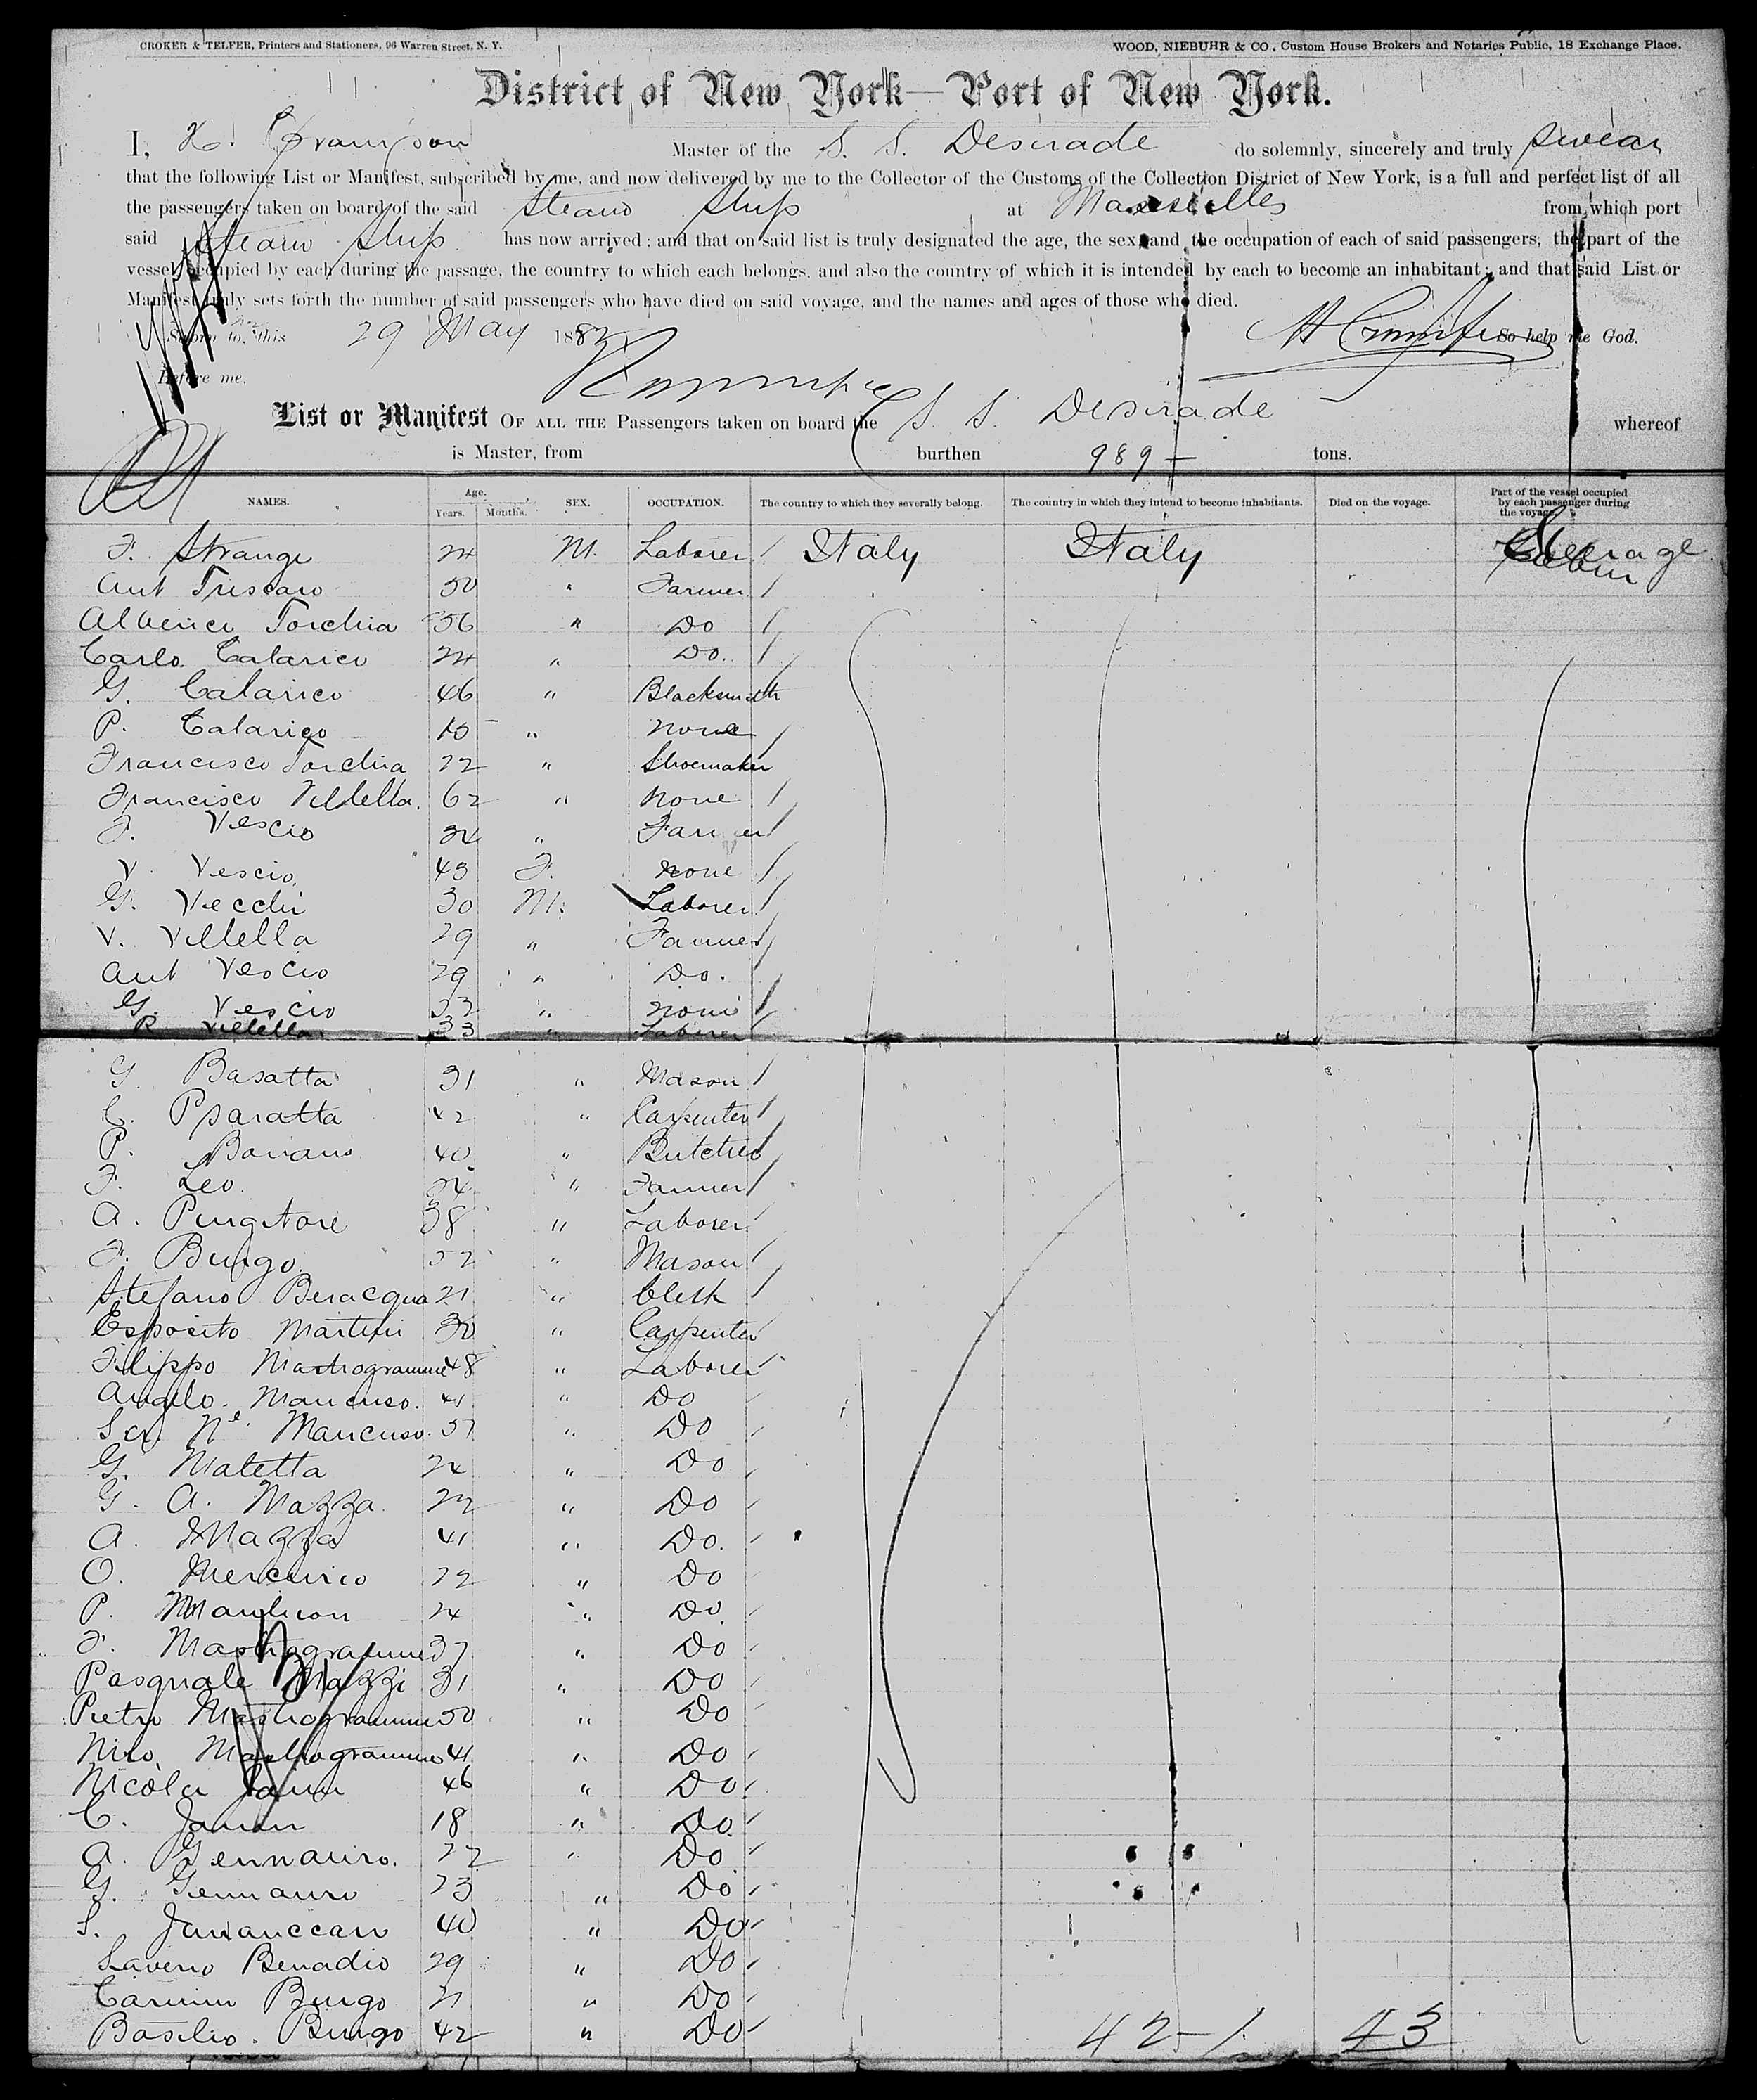 CROKER & TELFER, Printers and Stationers, 96 Warren Street, N. Y. WOOD, NIEBUHR & CO., Custom House Brokers and Notaries Public, 18 Exchange Place.
District of New York—Port of New York.
I, Master of the S. S. Desirade do solemnly, sincerely and truly swear
that the following List or Manifest, subscribed by me, and now delivered by me to the Collector of the Customs of the Collection District of New York, is a full and perfect list of all
the passengers taken on board of the said Steam Ship at Marseilles from which port
said Steam Ship has now arrived; and that on said list is truly designated the age, the sex and the occupation of each of said passengers, the part of the
vessel occupied by each during the passage, the country to which each belongs, and also the country of which it is intended by each to become an inhabitant; and that said List or
Manifest truly sets forth the number of said passengers who have died on said voyage, and the names and ages of those who died.
Sworn to, this 29 May 188 So help me God.
Before me.
List or Manifest OF ALL THE Passengers taken on board the S. S. Desirade whereof
is Master, from burthen 989 tons.
NAMES. Age. Years. Months. SEX. OCCUPATION. The country to which they severally belong. The country in which they intend to become inhabitants. Died on the voyage. Part of the vessel occupied by each passenger during the voyage.
F. Strange 24 M. Laborer Italy Italy Steerage
Ant 50 " Farmer
Torchia 56 " Do
Carlo Calarico 24 " Do.
G. Calarico 46 " Blacksmith
P. Calarico " None
Francisco Torchia 22 " Shoemaker
Francisco Villella. 62 " None
F. Vescio 34 " Farmer
V. Vescio 43 F. None
G. Vecchi 30 M. Laborer
V. Villella 29 " Farmer
Ant Vescio 29 " Do.
G. Vescio " None
P. Villella 33 " Laborer
G. Basatta 31 " Mason
C. Psaratta 42 " Carpenter
P. 40 " Butcher
F. Leo " Farmer
A. Pungitore 38 " Laborer
F. Burgo " Mason
Stefano Beracqua 21 " Clerk
Esposito Martin 30 " Carpenter
Filippo Mastrogramme 48 " Laborer
Angelo Mancuso. 41 " Do
Mancuso. " Do
G. Matetta 24 " Do
G. A. Mazza 22 " Do
A. Mazza 41 " Do.
O. Mercurico 22 " Do
P. 24 " Do
F. Mastrogramme 37 " Do
Pasquale Mazzi 31 " Do
Pietro Mastrogramme 50 " Do
Mastrogramme 41 " Do
Nicola 46 " Do
C. 18 " Do
A. Gennauro. 22 " Do
G. Gennauro 23 " Do
S. 40 " Do
Saverio Benadio 29 " Do
Burgo 21 " Do
Basilio. Burgo 42 " Do 42-1 43